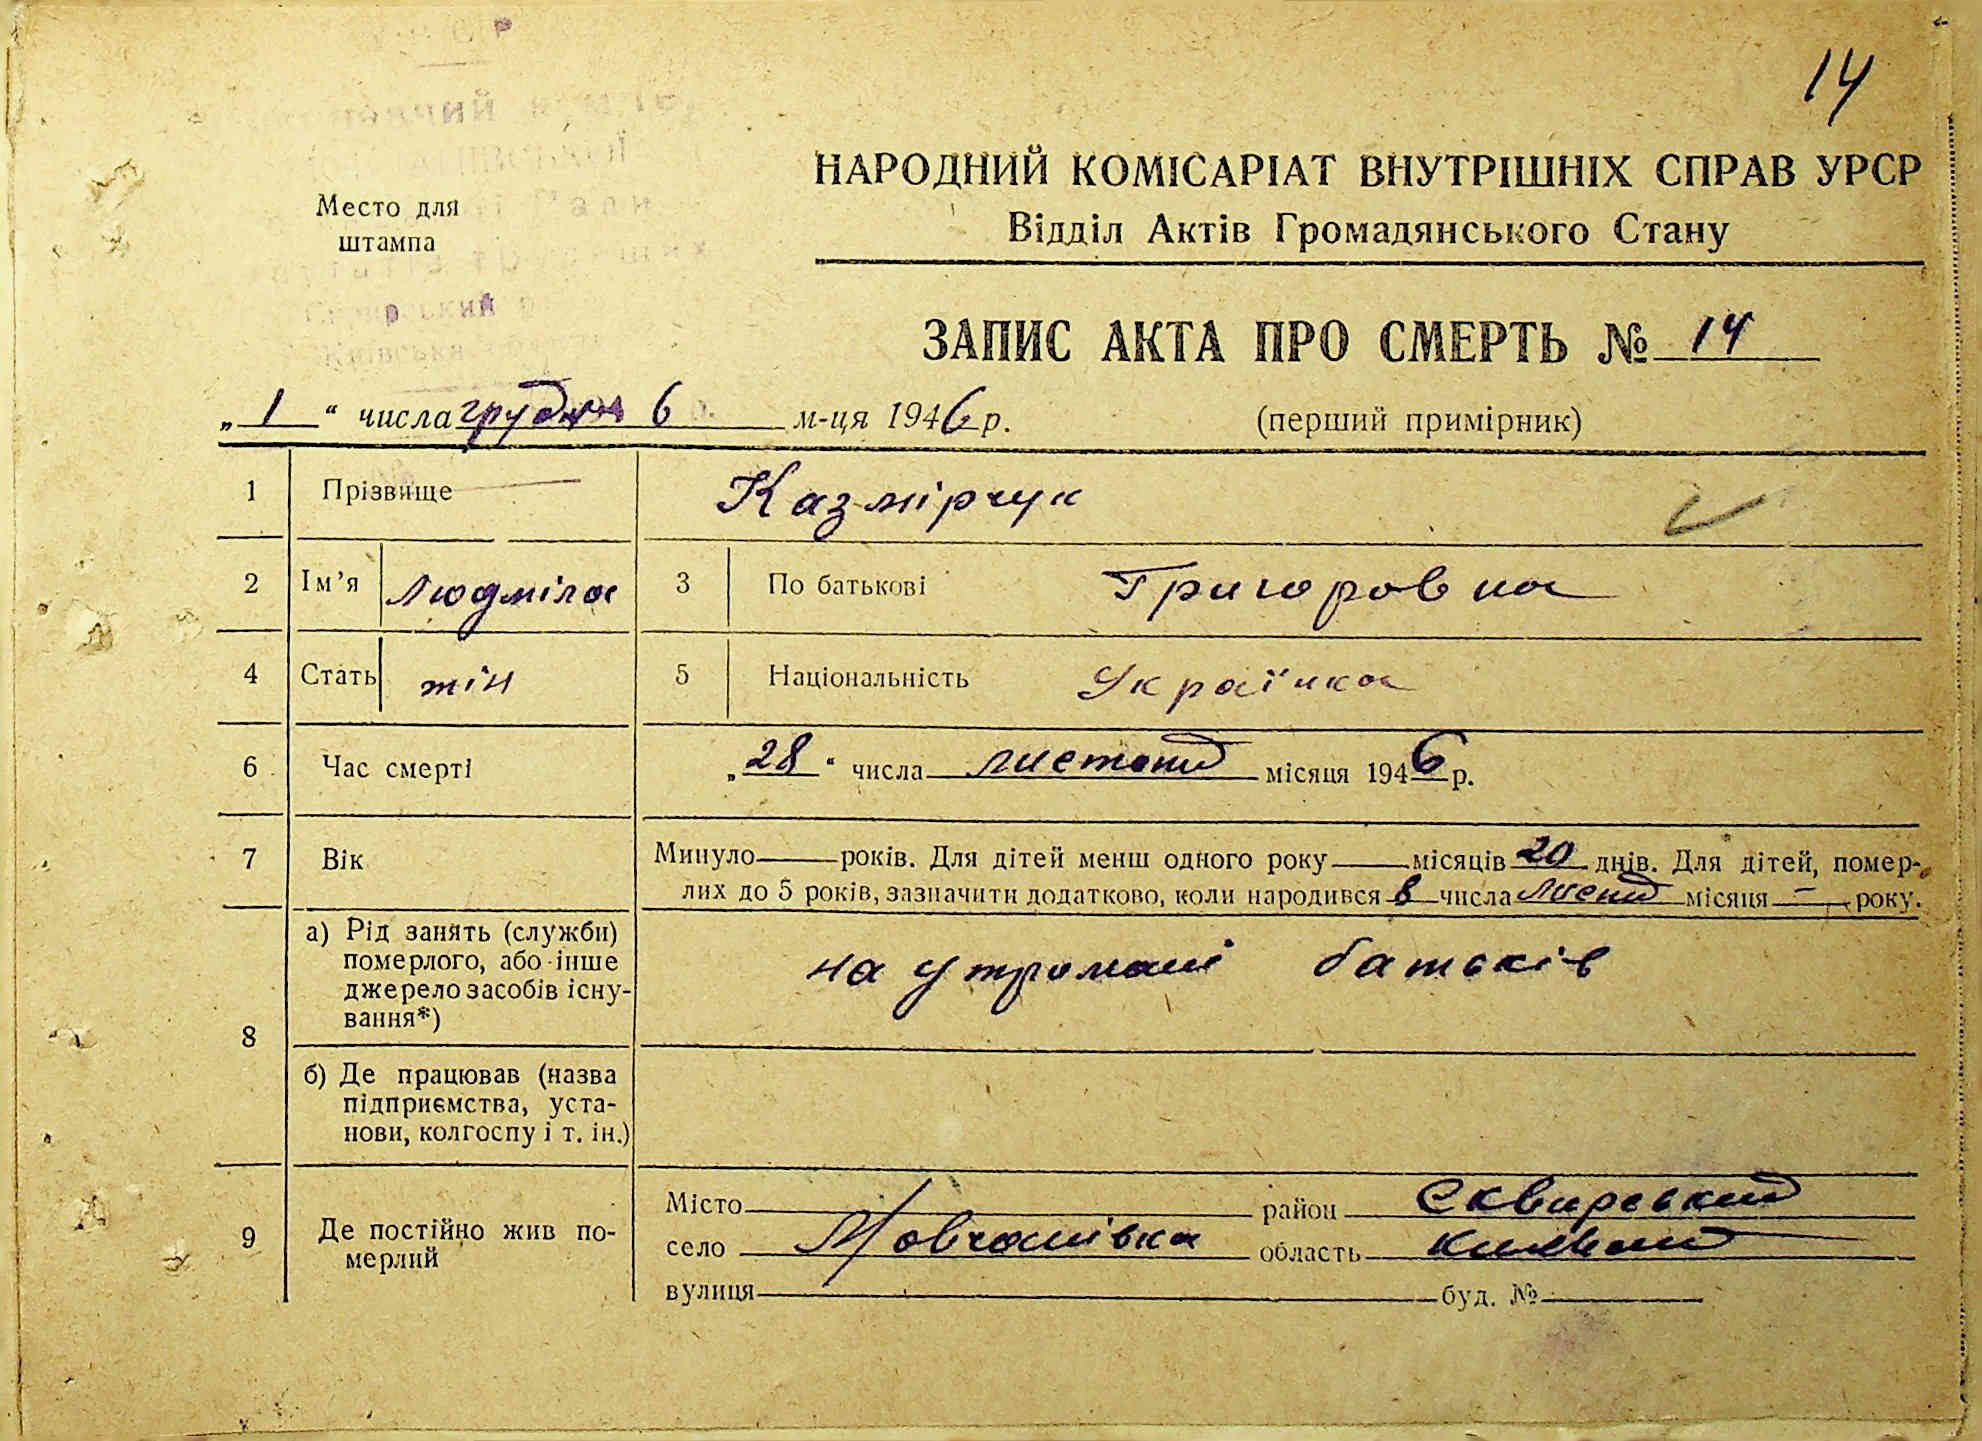 14
НАРОДНИЙ КОМІСАРІАТ ВНУТРІШНІХ СПРАВ УРСР
Відділ Актів Громадянського Стану
Место для
штампа
ЗАПИС АКТА ПРО СМЕРТЬ № 14
„1“ числа грудня 6 м-ця 1946 р.
(перший примірник)
1 Прізвище Казмірчук
2 Ім’я Людміла 3 По батькові Григоровна
4 Стать жін 5 Національність Українка
6 Час смерті „28“ числа листопад місяця 1946 р.
7 Вік Минуло років. Для дітей менш одного року місяців 20 днів. Для дітей, помер-
лих до 5 років, зазначити додатково, коли народився 8 числа місяця — року.
8
а) Рід занять (служби)
померлого, або інше
джерело засобів існу-
вання*)
на утримані батьків
б) Де працював (назва
підприємства, уста-
нови, колгоспу і т. ін.)
9 Де постійно жив по-
мерлий
Місто район Сквирський
село Мовчанівка область
вулиця буд. №